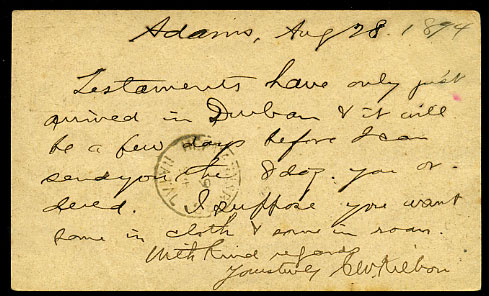 Adams, Aug 28. 1894
Testaments have only just
arrived in Durban & it will
be a few days before I can
send you the 8 doz. you or-
dered. I suppose you want
some in cloth & some in roan.
With kind regards
Yours truly CW Kilbon